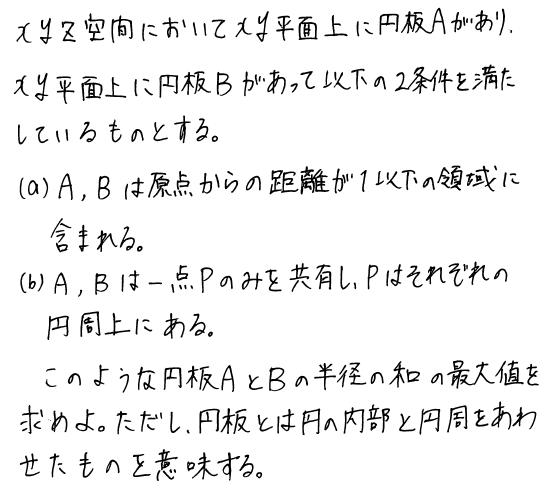 xyz空間においてxy平面上に円板Aがあり、
xy平面上に円板Bがあって以下の2条件を満た
しているものとする。
(a) A, Bは原点からの距離が1以下の領域に
含まれる。
(b) A, Bは一点Pのみを共有し、Pはそれぞれの
円周上にある。
このような円板AとBの半径の和の最大値を
求めよ。ただし、円板とは円の内部と円周をあわ
せたものを意味する。